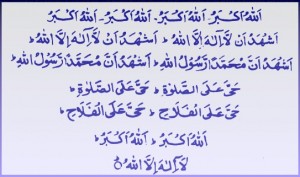 اَللهُ اَکْبَرُ اَللهُ اَکْبَرُ۔ اَللهُ اَکْبَرُ۔ اَللهُ اَکْبَرُ
اَشْهَدُ اَنْ لَّآ اِلٰهَ اِلَّا اللهُ ؕ اَشْهَدُ اَنْ لَّآ اِلٰهَ اِلَّا اللهُ ؕ
اَشْهَدُ اَنَّ مُحَمَّدًا رَّسُوْلُ اللهِ ؕ اَشْهَدُ اَنَّ مُحَمَّدًا رَّسُوْلُ اللهِ ؕ
حَیَّ عَلَی الصَّلٰوةِ ؕ حَیَّ عَلَی الصَّلٰوةِ ؕ
حَیَّ عَلَی الْفَلَاحِ ؕ حَیَّ عَلَی الْفَلَاحِ ؕ
اَللهُ اَکْبَرُ ؕ اَللهُ اَکْبَرُ ؕ
لَآ اِلٰهَ اِلَّا اللهُ ؕ